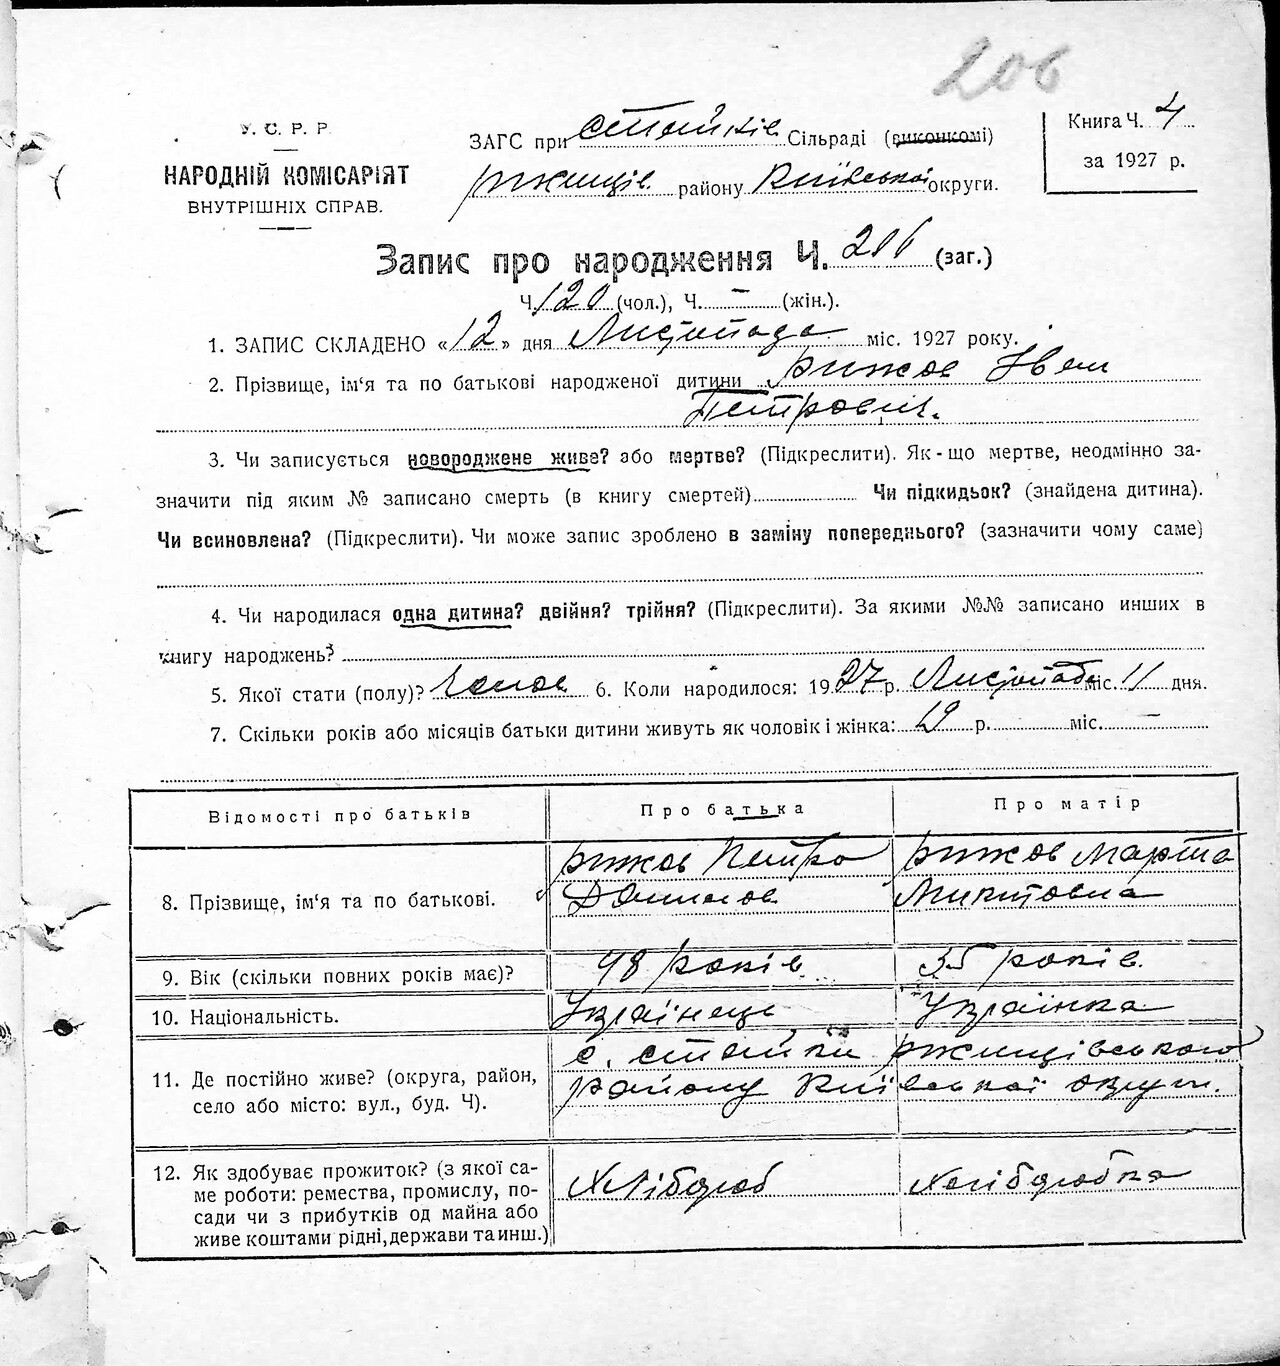 206
У. С. Р. Р.
НАРОДНІЙ КОМІСАРІЯТ
ВНУТРІШНІХ СПРАВ.
ЗАГС при Стайків Сільраді (виконкомі)
Ржищів району Київської округи.
Книга Ч. 4
за 1927 р.
Запис про народження Ч. 206 (заг.)
Ч. 120 (чол.), Ч. – (жін.).
1. ЗАПИС СКЛАДЕНО «12» дня Листопада міс. 1927 року.
2. Прізвище, ім‘я та по батькові народженої дитини Рижов Іван
Петрович.
3. Чи записується новороджене живе? або мертве? (Підкреслити). Як-що мертве, неодмінно за-
значити під яким № записано смерть (в книгу смертей) Чи підкидьок? (знайдена дитина).
Чи всиновлена? (Підкреслити). Чи може запис зроблено в заміну попереднього? (зазначити чому саме)
4. Чи народилася одна дитина? двійня? трійня? (Підкреслити). За якими №№ записано инших в
книгу народжень?
5. Якої стати (полу)? 6. Коли народилося: 1927 р. Листопада міс. 11 дня.
7. Скільки років або місяців батьки дитини живуть як чоловік і жінка: 19 р. міс. –
Відомості про батьків Про батька Про матір
8. Прізвище, ім‘я та по батькові. Рижов Петро Рижов Марта
Микитовна
9. Вік (скільки повних років має)? 48 років 35 років
10. Національність. Українець Українка
11. Де постійно живе? (округа, район,
село або місто: вул., буд. Ч).
с. Стайки Ржищівського
району Київської округи.
12. Як здобуває прожиток? (з якої са-
ме роботи: ремества, промислу, по-
сади чи з прибутків од майна або
живе коштами рідні, держави та инш.)
Хлібороб Хліборобка